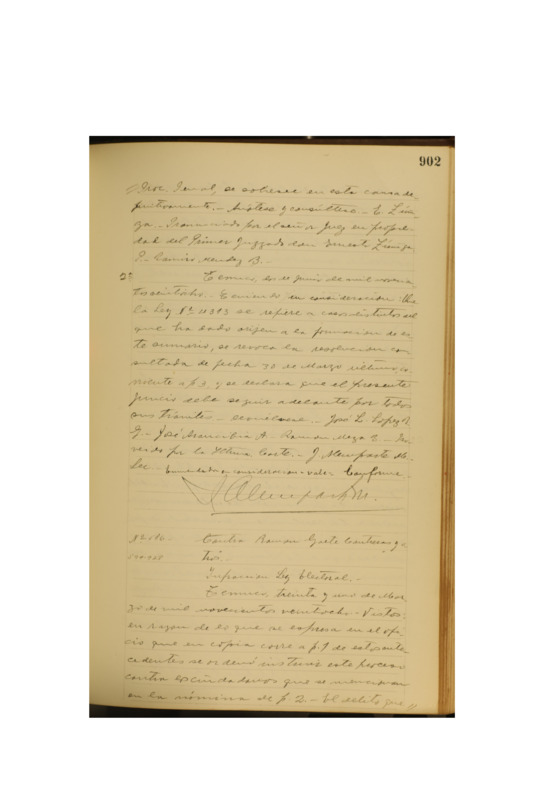 902
Proc. Penal, se sobresee en esta causa de-
finitivamente.- Anótese y consúltese.- E. Zúñi
ga.- Pronunciado por el señor Juez en propie-
dad del Primer Juzgado don Ernesto Zúñiga
Ramiro Méndez B.-
2ª Temuco, de Junio de mil novecien
tos veintiocho.- Teniendo en consideración: Que
la ley Nº 4313 se refiere a casos distintos del
que ha dado origen a la formación de es
te sumario, se revoca la resolución con
sultada de fecha 30 de Marzo último, co
rriente a f. 9, y se declara que el presente
juicio debe seguir adelante por todos
sus trámites.- devuélvase.- José L. López
G.- José A.- Ramón Meza
por la Iltma Corte.- J.
Enmendado consideracion vale. Conforme.-
Contra Ramón Gaete Contreras y o
tros.-
Infracción Ley Electoral.-
Temuco, treinta y uno de Mar
zo de mil novecientos veintiocho.- Vistos:
en razón de lo que se expresa en el ofi
cio que en copia corre a f. 1 de estos ante
cedentes se ordenó instruir este proceso
contra los ciudadanos que se mencionan
en la nómina de f. 2.- El delito que //